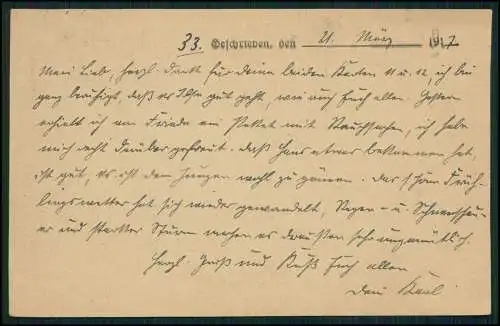 33. Geschrieben, den 21. März 1917
Mein Lieb, herzl. Dank für deine beiden Karten 11 u. 12, ich bin
ganz beruhigt, daß es Ilse gut geht, wie auch Euch allen. Gestern
erhielt ich von Frieda ein Paket mit Rauchsachen, ich habe
mich recht darüber gefreut. Daß Hans etwas bekommen hat,
ist gut, es ist dem Jungen wohl zu gönnen. Das schöne Früh-
lingswetter hat sich wieder gewandelt, Regen- u. Schneeschau-
er und starker Sturm machen es draußen sehr ungemütlich.
Herzl. Gruß und Kuß Euch allen
Dein Karl